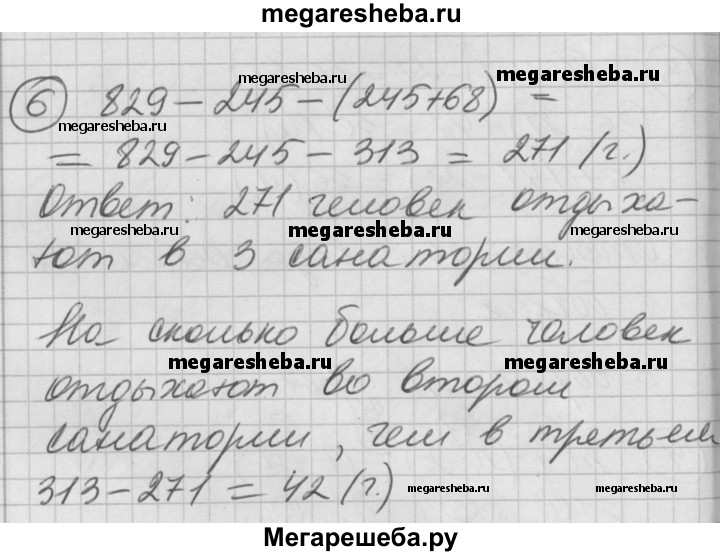 megaresheba.ru
megaresheba.ru megaresheba.ru
6 829 - 245 - (245+68) =
megaresheba.ru megaresheba.ru
= 829 - 245 - 313 = 271 (г.)
Ответ: 271 человек отдыха-
megaresheba.ru megaresheba.ru megaresheba.ru
ют в 3 санатории.
На сколько больше человек
megaresheba.ru megaresheba.ru
отдыхают во втором
санатории, чем в третьем
313 - 271 = 42 (г.)
megaresheba.ru megaresheba.ru
Мегарешеба.ру